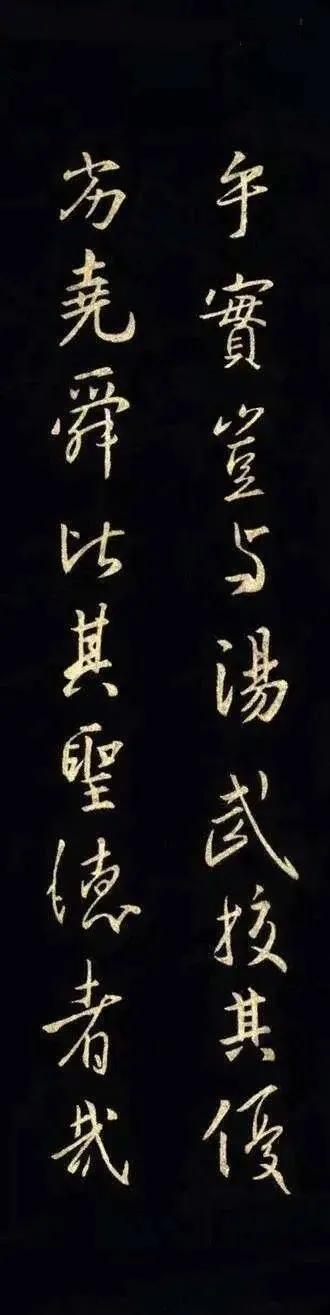 乎實豈与湯武挍其優
劣堯舜比其聖德者哉